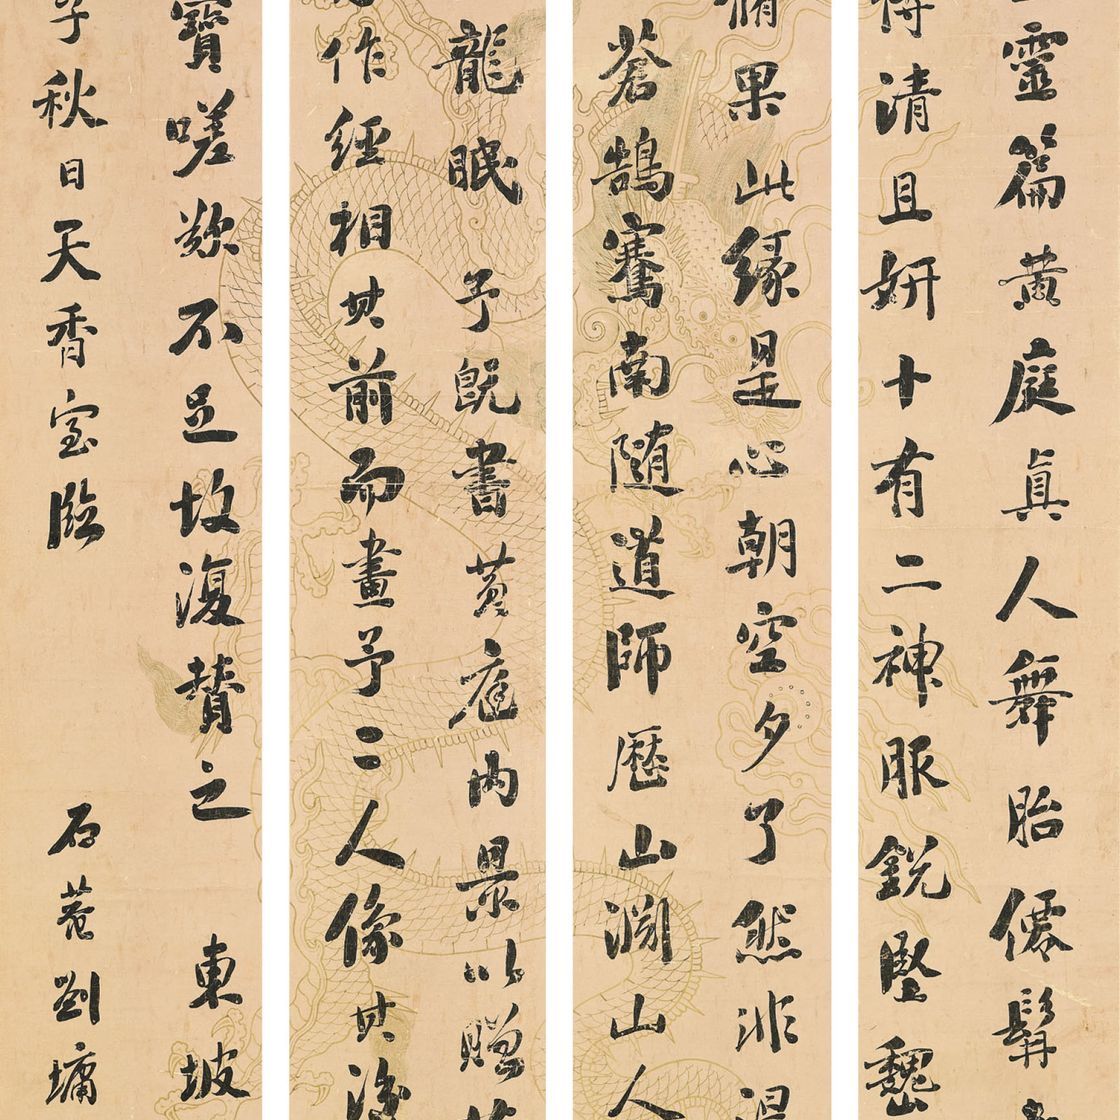 靈篇黃庭真人舞胎僊髯
清且妍十有二神服銳堅巍
果此緣是心朝空夕了然非
蒼鵠騫南隨道師歷山淵山人
龍眠予既書黃庭內景以贈
作經相其前而畫予二人像其後
寶嗟歎不足故復贊之東坡
秋日天香室臨石菴劉墉